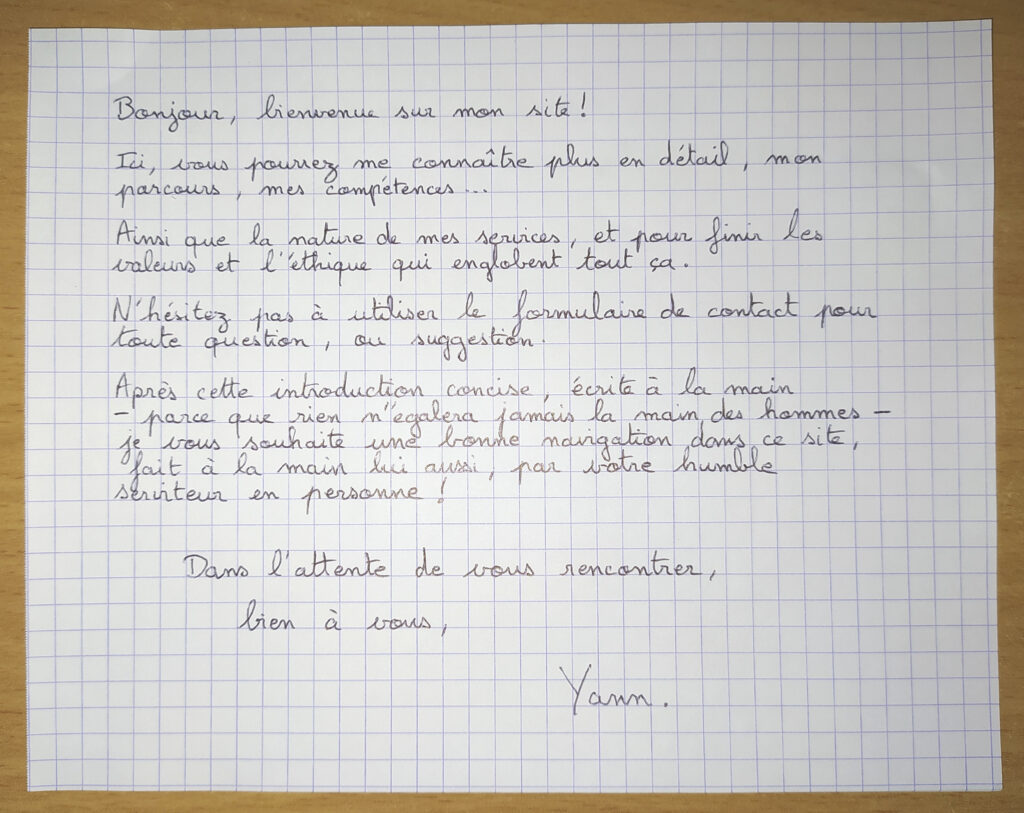 Bonjour, bienvenue sur mon site !
Ici, vous pourrez me connaître plus en détail, mon
parcours, mes compétences...
Ainsi que la nature de mes services, et pour finir les
valeurs et l'éthique qui englobent tout ça.
N'hésitez pas à utiliser le formulaire de contact pour
toute question, ou suggestion.
Après cette introduction concise, écrite à la main
- parce que rien n'égalera jamais la main des hommes -
je vous souhaite une bonne navigation dans ce site,
fait à la main lui aussi, par votre humble
serviteur en personne !
Dans l'attente de vous rencontrer,
bien à vous,
Yann.